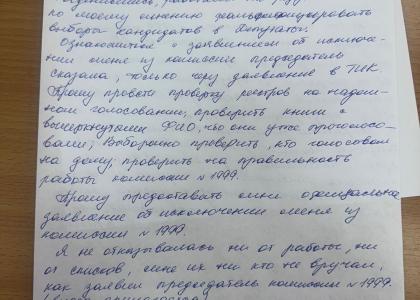 по моему мнению фальсифицировать
выборы кандидатов в депутаты.
Ознакомится с заявлением об исключе-
нии меня из комиссии председатель
сказала, только через заявление в ТИК.
Прошу провести проверку реестров на надом-
ном голосовании, проверить книги с
вычеркнутыми ФИО, что они уже проголосо-
вали, выборочно проверить, кто голосовал
на дому, проверить на правильность
работы комиссии №1999.
Прошу предоставить мне официальное
заявление об исключении меня из
комиссии №1999.
Я не отказывалась ни от работы, ни
от списков, мне их ни кто не вручал,
как заявил председатель комиссии №1999